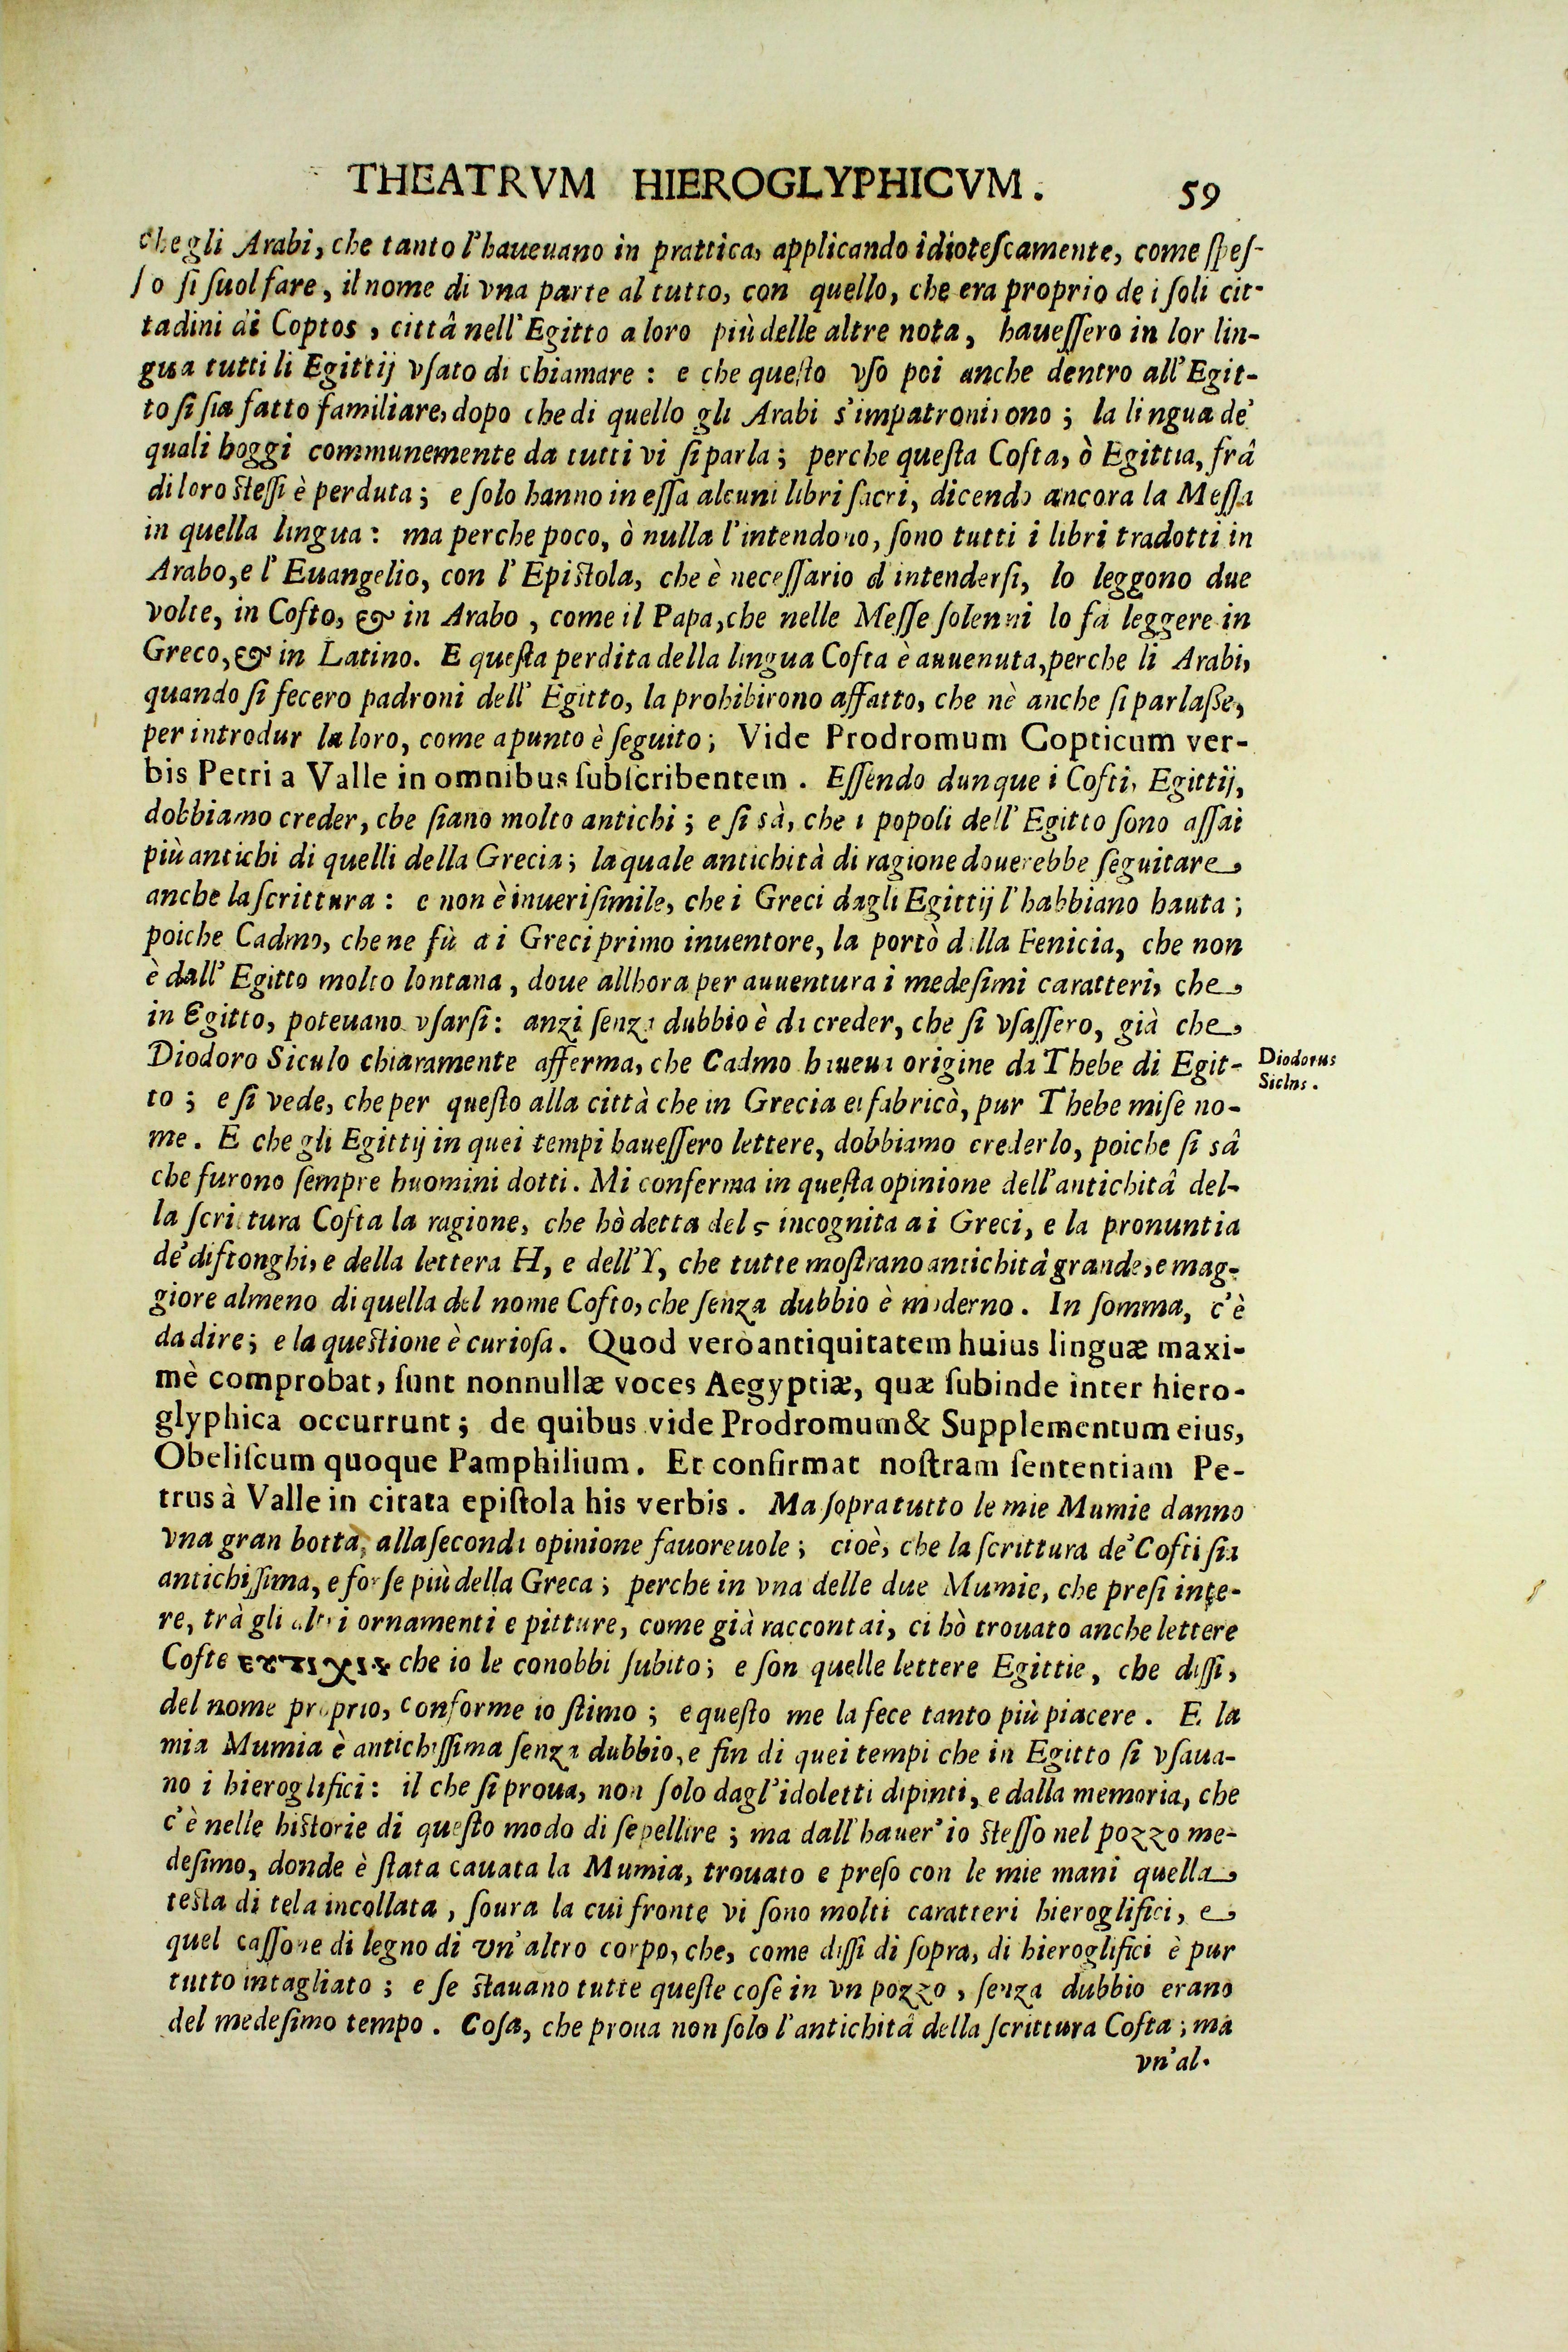 THEATRVM HIEROGLYPHICVM. 59
che gli Arabi, che tanto l'haueuano in prattica, applicando idioteſcamente, come ſpeſ-
ſo ſi ſuol fare, il nome di vna parte al tutto, con quello, che era proprio de i ſoli cit-
tadini di Coptos, cittâ nell'Egitto a loro più delle altre nota, haueſſero in lor lin-
gua tutti li Egittij vſato di chiamare: e che queſto vſo poi anche dentro all'Egit-
to ſi ſia fatto familiare, dopo che di quello gli Arabi s'impatronirono; la lingua de'
quali hoggi communemente da tutti vi ſi parla; perche queſta Cofta, ò Egittia, frâ
di loro ſteſſi è perduta; e ſolo hanno in eſſa alcuni libri ſacri, dicendo ancora la Meſſa
in quella lingua: ma perche poco, ò nulla l'intendono, ſono tutti i libri tradotti in
Arabo, e l'Euangelio, con l'Epiſtola, che è neceſſario d intenderſi, lo leggono due
volte, in Cofto, & in Arabo, come il Papa, che nelle Meſſe ſolenni lo fà leggere in
Greco, & in Latino. E queſta perdita della lingua Cofta è auuenuta, perche li Arabi,
quando ſi fecero padroni dell' Egitto, la prohibirono affatto, che nè anche ſi parlaſſe,
per introdur la loro, come apunto è ſeguito; Vide Prodromum Copticum ver-
bis Petri a Valle in omnibus ſubſcribentem. Eſſendo dunque i Cofti, Egittij,
dobbiamo creder, che ſiano molto antichi; e ſi sà, che i popoli dell' Egitto ſono aſſai
più antichi di quelli della Grecia; la quale antichità di ragione douerebbe ſeguitare
anche la ſcrittura: e non è inueriſimile, che i Greci dagli Egittij l'habbiano hauta;
poiche Cadmo, che ne fù a i Greci primo inuentore, la portò dalla Fenicia, che non
è dall' Egitto molto lontana, doue allhora per auuentura i medeſimi caratteri, che
in Egitto, poteuano vſarſi: anzi ſenza dubbio è di creder, che ſi vſaſſero, già che
Diodoro Siculo chiaramente afferma, che Cadmo haueua origine da Thebe di Egit-
Diodorus
Siclus.
to; e ſi vede, che per queſto alla città che in Grecia ei fabricò, pur Thebe miſe no-
me. E che gli Egittij in quei tempi haueſſero lettere, dobbiamo crederlo, poiche ſi sâ
che furono ſempre huomini dotti. Mi conferma in queſta opinione dell'antichitâ del-
la ſcrittura Cofta la ragione, che hò detta del ϛ incognita a i Greci, e la pronuntia
de' diftonghi, e della lettera H, e dell'Y, che tutte moſtrano antichità grande, e mag-
giore almeno di quella del nome Cofto, che ſenza dubbio è moderno. In ſomma, c'è
da dire; e la queſtione è curioſa. Quod verò antiquitatem huius linguæ maxi-
mè comprobat, ſunt nonnullæ voces Aegyptiæ, quæ ſubinde inter hiero-
glyphica occurrunt; de quibus vide Prodromum & Supplementum eius,
Obeliſcum quoque Pamphilium. Et confirmat noſtram ſententiam Pe-
trus à Valle in citata epiſtola his verbis. Ma ſopra tutto le mie Mumie danno
vna gran botta, alla ſeconda opinione fauoreuole; cioè, che la ſcrittura de' Cofti ſia
antichiſſima, e forſe più della Greca; perche in vna delle due Mumie, che preſi inte-
re, trà gli altri ornamenti e pitture, come già raccontai, ci hò trouato anche lettere
Cofte che io le conobbi ſubito; e ſon quelle lettere Egittie, che diſſi,
del nome proprio, conforme io ſtimo; e queſto me la fece tanto più piacere. E la
mia Mumia è antichiſſima ſenza dubbio, e fin di quei tempi che in Egitto ſi vſaua-
no i hieroglifici: il che ſi proua, non ſolo dagl'idoletti dipinti, e dalla memoria, che
c'è nelle hiſtorie di queſto modo di ſepellire; ma dall'hauer'io ſteſſo nel pozzo me-
deſimo, donde è ſtata cauata la Mumia, trouato e preſo con le mie mani quella
teſta di tela incollata, ſoura la cui fronte vi ſono molti caratteri hieroglifici, e
quel caſſone di legno di vn'altro corpo, che, come diſſi di ſopra, di hieroglifici è pur
tutto intagliato; e ſe ſtauano tutte queſte coſe in vn pozzo, ſenza dubbio erano
del medeſimo tempo. Coſa, che proua non ſolo l'antichitâ della ſcrittura Cofta; ma
vn'al-